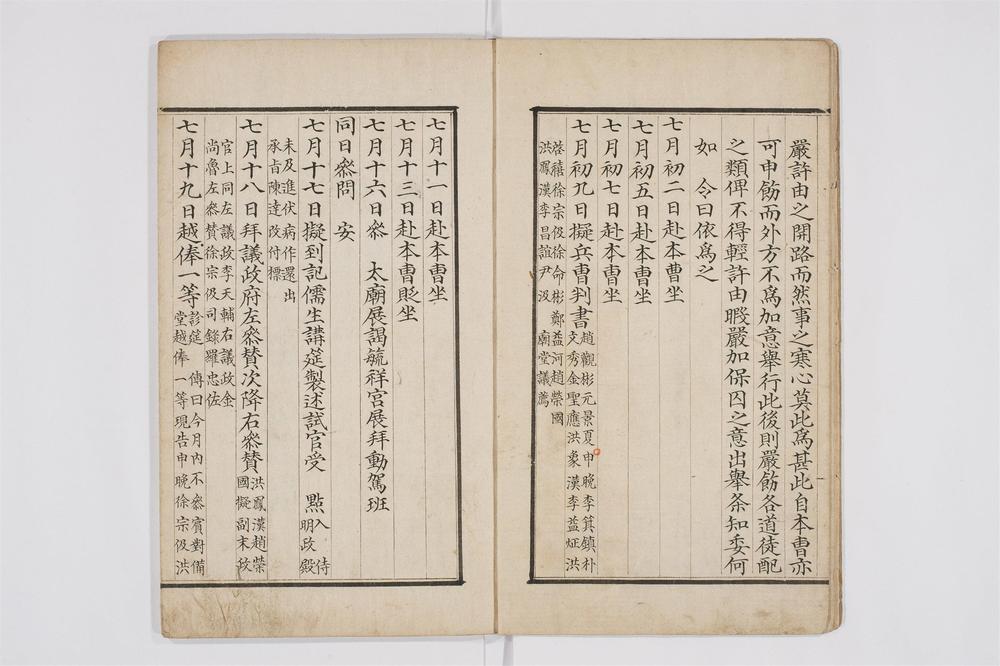 嚴許由之開路而然事之寒心莫此爲甚此自本曹亦
可申飭而外方不爲加意擧行此後則嚴飭各道徒配
之類俾不得輕許由暇嚴加保囚之意出擧条知委何
如 令曰依爲之
七月初二日赴本曹坐
七月初五日赴本曹坐
七月初七日赴本曹坐
七月初九日擬兵曹判書趙觀彬元景夏申晚李箕鎮朴
文秀金聖應洪象漢李益炡洪
啓禧徐宗伋徐命彬鄭益河趙榮國
洪鳳漢李昌誼尹汲 廟堂議薦
七月十一日赴本曹坐
七月十三日赴本曹貶坐
七月十六日叅 太廟展謁毓祥宮展拜動駕班
同日叅問 安
七月十七日擬到記儒生講筵製述試官受 點入侍
明政殿
未及進伏病作還出
承旨陳達改付標
七月十八日拜議政府左叅賛次降右叅賛洪鳳漢趙榮
國擬副末攸
官上同左議政李天輔右議政金
尚魯左叅賛徐宗伋司錄羅忠佐
七月十九日越俸一等診筵 傳曰今月內不叅賓對備
堂越俸一等現告申晚徐宗伋洪